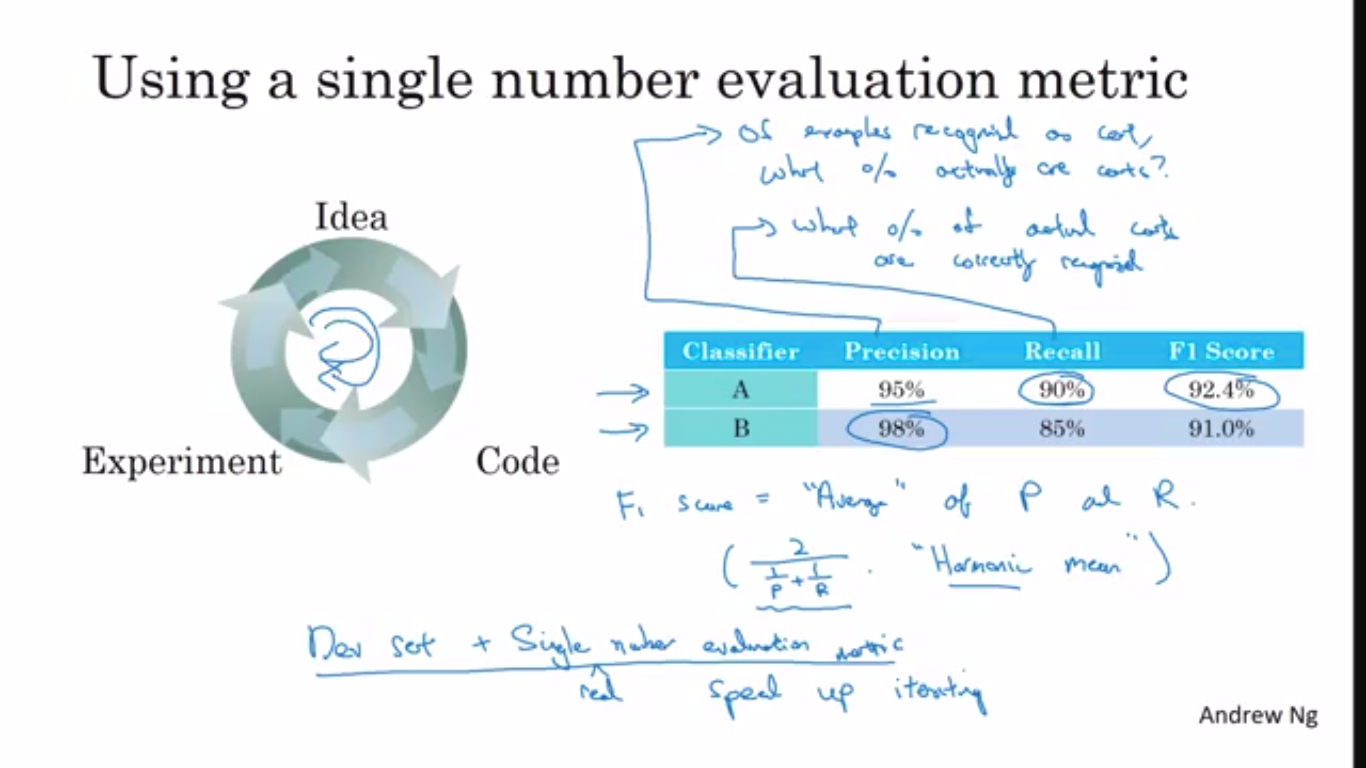 Using a single number evaluation metric
Of examples recognized as cats,
what % actually are cats?
what % of actual cats
are correctly recognized
Idea
Experiment
Code
Classifier Precision Recall F1 Score
A 95% 90% 92.4%
B 98% 85% 91.0%
F1 score = "Average" of P and R.
( 2 / (1/P + 1/R) . "Harmonic mean" )
Dev set + Single number evaluation metric
real speed up iterating
Andrew Ng